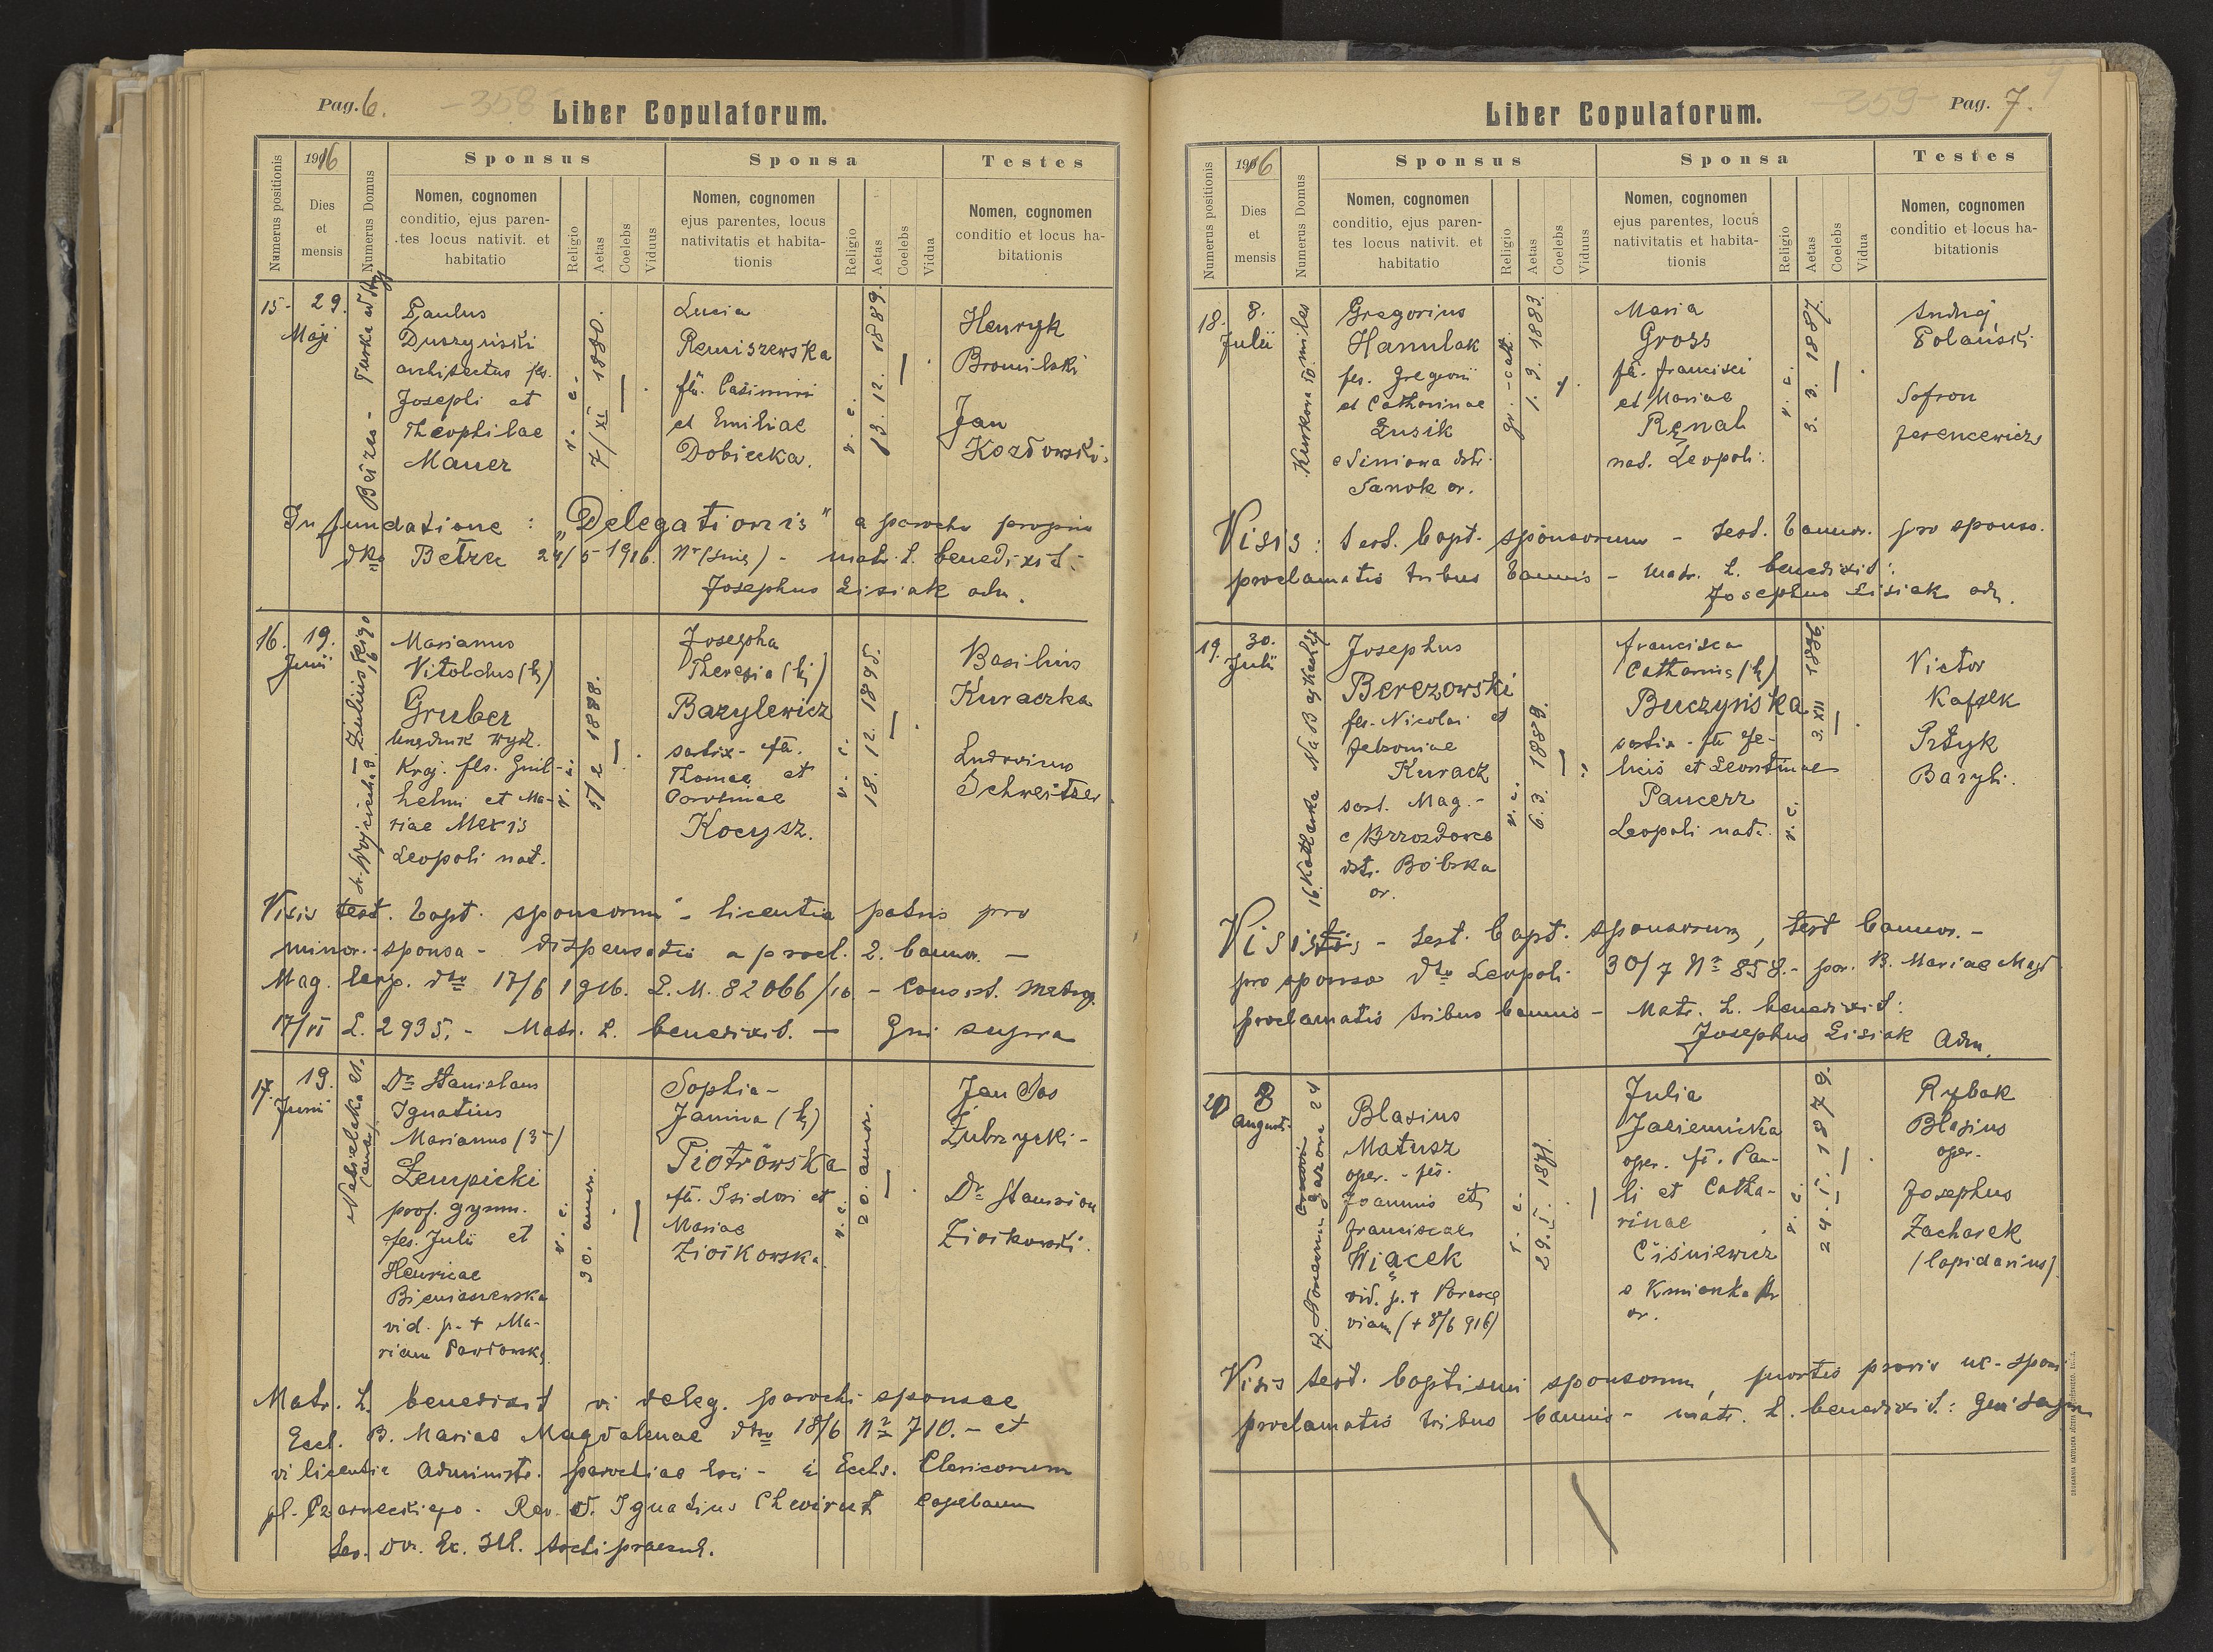 Pag. 6.
358
Liber Copulatorum.
Numerus positionis
1916
Dies
et
mensis
Numerus Domus
Sponsus
Nomen, cognomen
conditio, ejus paren-
tes locus nativit. et
habitatio
Religio
Aetas
Coelebs
Viduus
Sponsa
Nomen, cognomen
ejus parentes, locus
nativitatis et habita-
tionis
Religio
Aetas
Coelebs
Vidua
Testes
Nomen, cognomen
conditio et locus ha-
bitationis
15-
29.
Maji
Paulus
Duszyński
architectus fls.
Josephi et
Theophilae
Mauer
r. c.
7/XI 1880.
Lucia
Remiszewska
fla. Casimiri
et Emiliae
Dobiecka.
r. c.
13. 12. 1889.
Henryk
Bronilski
Jan
Kozłowski.
In fundatione : „Delegationis" a parocho proprio
dto Betzec 24/5 1916. Nr (sine) - matr. L. benedixit.
Josephus Lisiak adm.
16.
19.
Junii
Marianus
Vitoldus (2i)
Gruber
Urzędnik Wydz.
Kraj. fls. Guil-
helmi et Ma-
riae Mexis
Leopoli nat.
r. c.
5/2 1888.
Josepha
Theresia (2i)
Bazylewicz
sartrix - fla.
Thomae et
Kocysz.
r. c.
18. 12. 1895.
Basilius
Kuraczka
Ludovicus
Schweitzer.
Visis test. bapt. sponsorum - licentia patris pro
minor. sponsa - dispensatio a procl. 2. bannor. -
Mag. leop. dto 17/6 1916. L.M. 82066/16 - Consist. Metrop.
17/VI L. 2935. - Matr. L. benedixit. - Qui supra
17.
19.
Junii
Nabielaka 21.
Dr Stanislaus
Ignatius
Marianus (3-)
Łempicki
prof. gymn.
fls. Julii et
Henricae
Bieniaszewska
vid. p. + Ma-
riam Pawłowską.
r. c.
30. annor.
Sophia -
Janina (2i)
Piotrowska
fla. Isidori et
Mariae
Ziołkowska.
r. c.
20. annor.
Jan Sas
Zubrzycki -
Dr
Ziołkowski.
Matr. L. benedixit vi deleg. parochi sponsae
Eccl. B. Mariae Magdalenae dto 18/6 Nr 710. - et
vi licentia Administr. parochiae loci - in Eccls. Clericorum
pl. Czarneckiego. Rev. d. Ignatius Chwirut Capellanus
Archipraesul.
Pag. 7.
359
Liber Copulatorum.
Numerus positionis
1916
Dies
et
mensis
Numerus Domus
Sponsus
Nomen, cognomen
conditio, ejus paren-
tes locus nativit. et
habitatio
Religio
Aetas
Coelebs
Viduus
Sponsa
Nomen, cognomen
ejus parentes, locus
nativitatis et habita-
tionis
Religio
Aetas
Coelebs
Vidua
Testes
Nomen, cognomen
conditio et locus ha-
bitationis
18.
8.
Julii
Kurkowa 10. miles
Gregorius
Hanulak
fls. Gregorii
et Catharinae
Łusik
e Siniawa dstr.
Sanok or.
gr. - cath.
1. 3. 1883.
Maria
Gross
fla. Francisci
et Mariae
nat. Leopoli.
r. c.
3. 3. 1887.
Andrej
Polański
Sofron
Jarencewicz
Visis : test. bapt. sponsorum - test. bannor. pro sponso.
proclamatis tribus bannis - matr. L. benedixit:
Josephus Lisiak adm.
19.
30.
Julii
Josephus
Berezowski
fls. Nicolai et
Kuracz
sert. Mag. -
e Brzozdowce
dstr. Bóbrka
or.
r. c.
6. 3. 1889.
Francisca
Catharina (2i)
Buczyńska
sartrix - fla Fe-
licis et Leontinae
Pancerz
Leopoli nata.
r. c.
3. XII 1889.
Victor
Kafsek
Prtyk
Bazyli.
Visis - test. bapt. sponsorum, test bannor. -
pro sponsa dto Leopoli 30/7 Nr 858. - par. B. Mariae Magd
proclamatis tribus bannis - Matr. L. benedixit:
Josephus Lisiak Adm.
20
8
Augusti
Blasius
Matusz
oper. - fls.
Joannis et
Franciscae
Wiącek
viam (+ 8/6 916)
r. c.
29. 5. 1871.
Julia
Jasiemicka
oper. fl. Pau-
li et Catha-
rinae
Ciśniewicz
or.
r. c.
24. 5. 1879.
Rybak
Blasius
oper.
Josephus
Zacharek
(lapidarius)
Visis test. baptismi sponsorum, mortis prioris ux. sponsi
proclamatis tribus bannis - matr. L. benedixit.: Qui supra